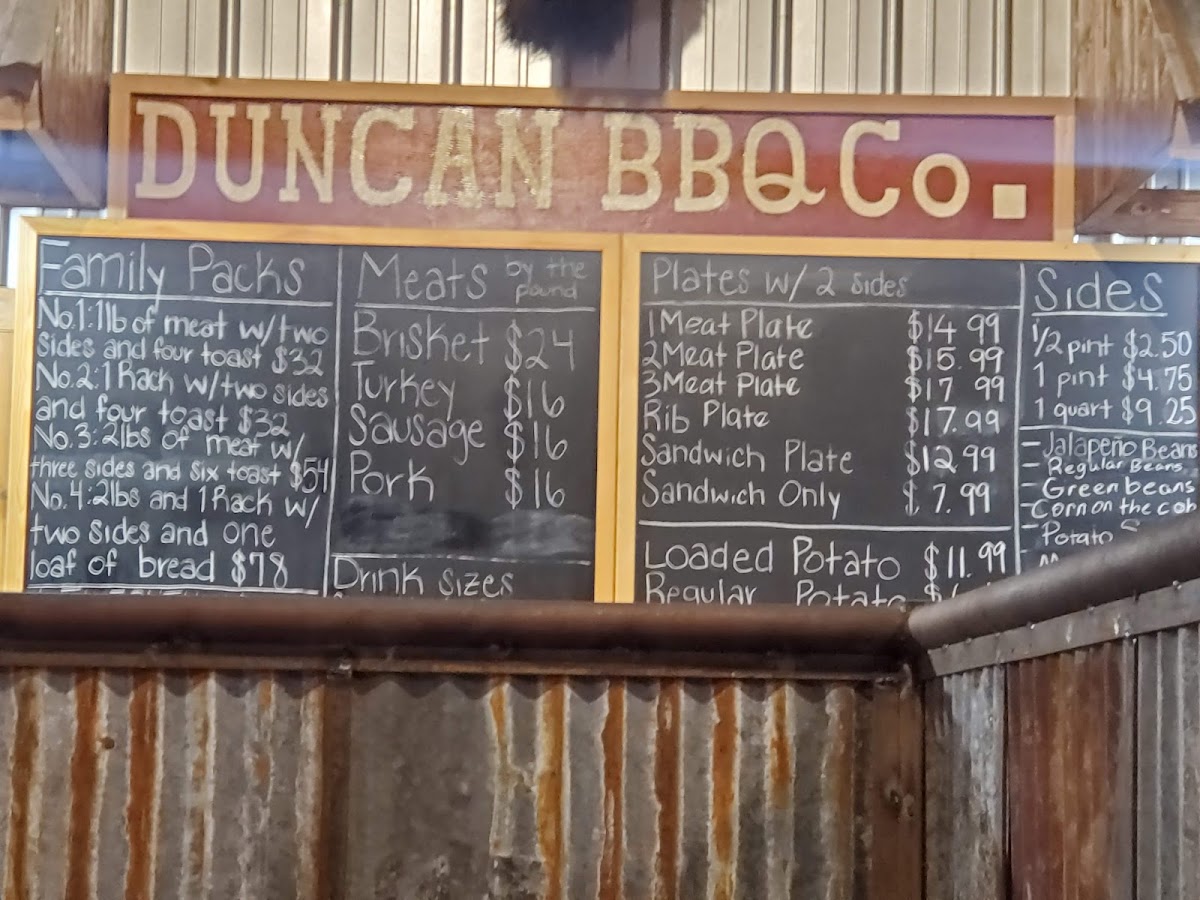 DUNCAN BBQ Co.
Family Packs
No.1:1lb of meat w/two
sides and four toast $32
No.2:1Rack w/two sides
and four toast $32
No.3:2lbs of meat w/
three sides and six toast $54
No.4:2lbs and 1Rack w/
two sides and one
loaf of bread $78
Meats by the pound
Brisket $24
Turkey $16
Sausage $16
Pork $16
Drink Sizes
Plates w/ 2 sides
1Meat Plate $14.99
2Meat Plate $15.99
3Meat Plate $17 99
Rib Plate $17.99
Sandwich Plate $12.99
Sandwich Only $ 7.99
Loaded Potato $11.99
Regular Potato
Sides
1/2 pint $2.50
1 pint $4.75
1 quart $9.25
- Jalapeño Beans
- Regular Beans
- Green beans
- Corn on the cob
- Potato